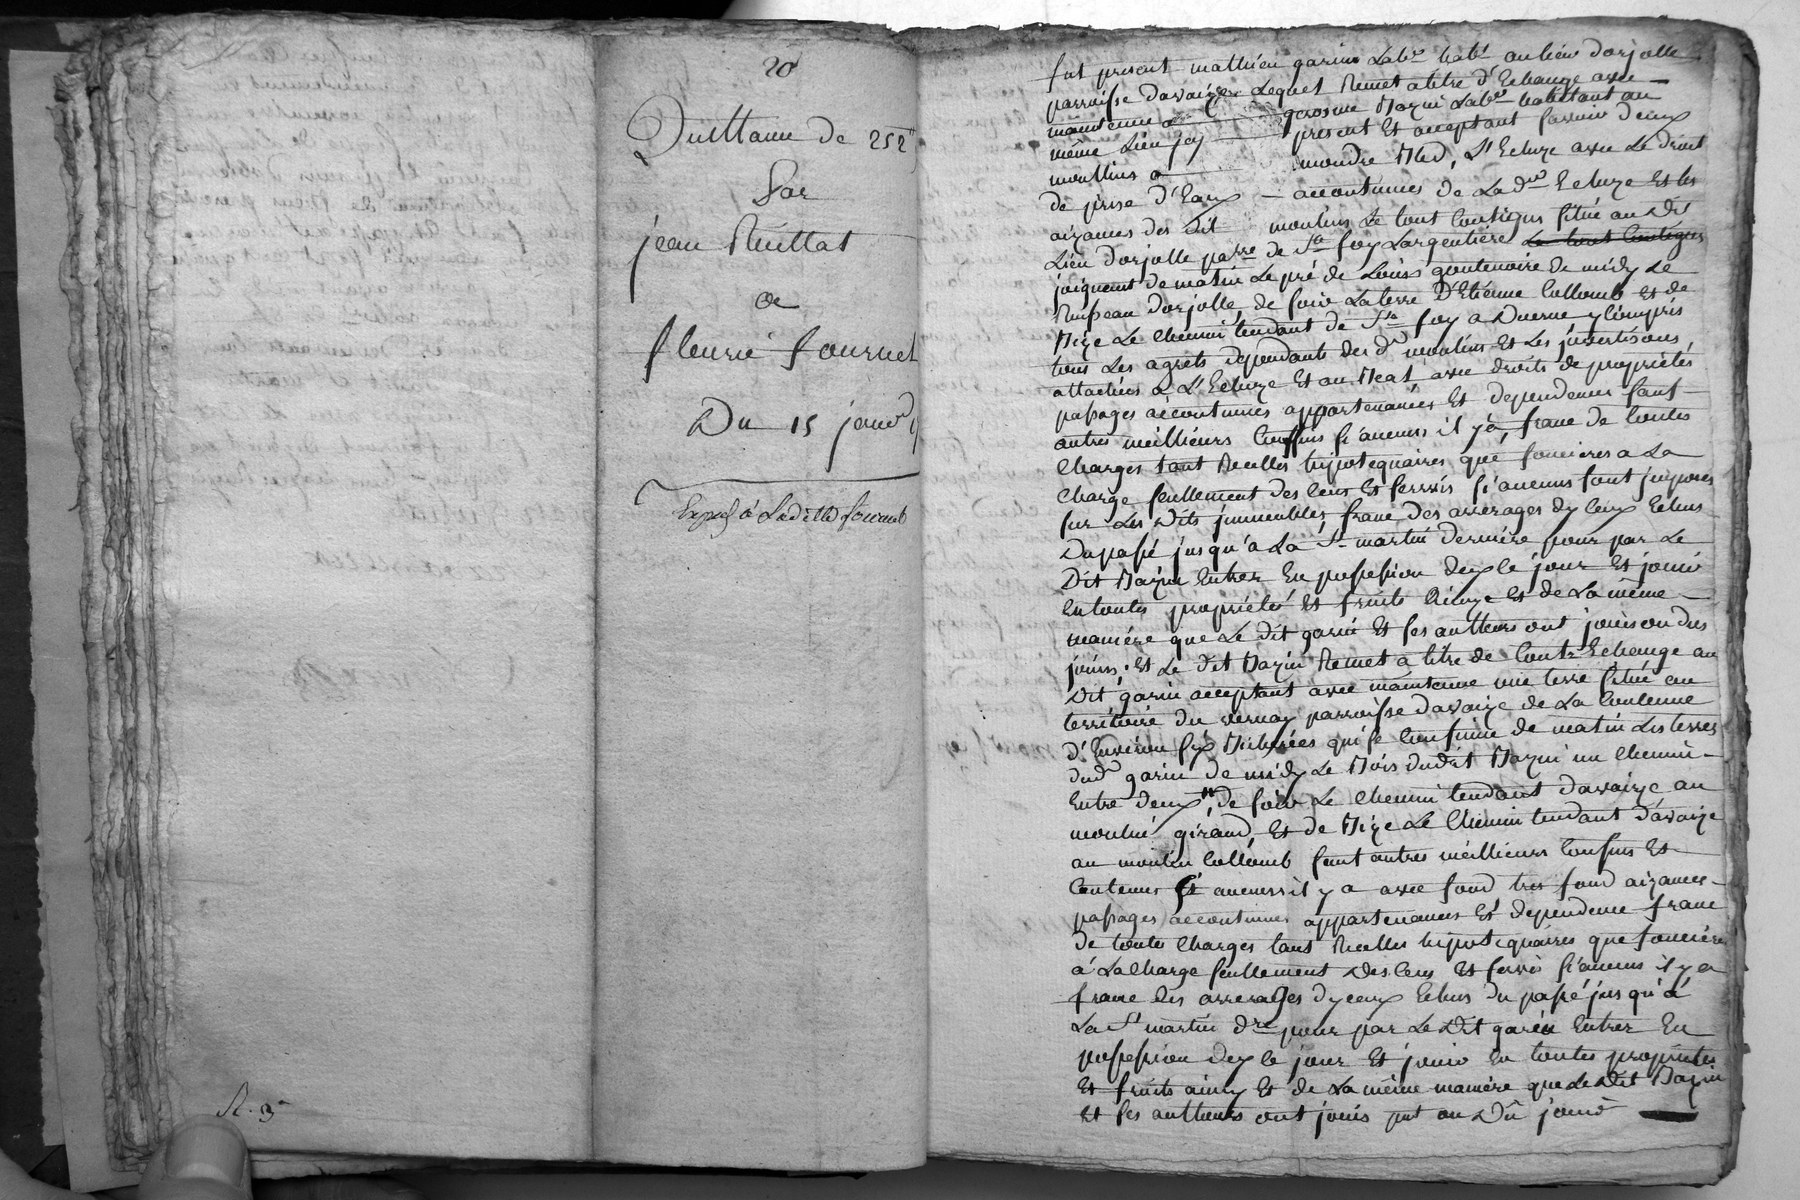 20
Quittance de 252
Par
jean Ruillat
a
fleurie fournel
Du 15 janv
Exped à Laditte fournel
R. 3
fut present mathieu garin Lab.r hab.t au lieu dorjolle
parroisse davaize Lequel Remet a titre d'Echange avec
maintenue a Mazui Lab.r habitant au
même Lieu icy present et acceptant savoir deux
moullins a moudre Bled, L'Ecluze avec Le droit
de prise d'Eaux accoutumés de La d.te Ecluze et les
aizances des dit moulins Le tout Contigus situé au dit
Lieu dorjolle par.sse de S.te foy Largentière Le tout Contigus
joignent de matin Le pré de Louis gontenoire de midy Le
Ruisseau dorjolle, de soir La terre D'Etienne Collomb Et de
Bize Le chemin tendant de S.te foy a Duerne y Compris
tous Les agrets dependants des d. moulins Et Les
attachées à L'Ecluze Et au avec droits de propriétés
passages accoutumés appartenances Et dependences sauf
autres meillieurs Confins si aucuns il y à, franc de toutes
Charges tant Reelles hypotequaires que foncieres a La
Charge seullement des Cens Et servis si aucuns sont imposés
sur Les dits immeubles franc des arrerages dyceux Echus
Du passé jusqu'a La S.t martin derniére pour par Le
Dit Mazui Entrer En possession dez le jour Et jouir
En toutes propriétés Et fruits Et de La même
maniére que Le dit garin Et ses autheurs ont jouis ou dus
jouirs; Et Le dit Mazui Remet a titre de Contr'Echange au
Dit garin acceptant avec maintenue une terre situé au
territoire du vernay parroisse davaize de La Contenue
d'Environ six Bicherées qui se Confinne de matin Les terres
dud. garin de midy Le Bois dudit Mazui un chemin
Entre deux, de soir Le chemin tendant davaize au
moulin giraud, Et de Bize Le Chemin tendant d'avaize
au moulin Collomb sauf autres meillieurs Confins Et
Contenues si aucuns il y a avec fond tres fond aizances
passages accoutumés appartenances Et dependence franc
de toutes Charges tant Reelles hipotequaires que foncière
à La Charge seullement des Cens Et servis si aucuns il y a
franc des arrerages dyceux Echus du passé jusqu'à
La S.t martin d.re pour par Le dit garin Entrer En
possession dez le jour Et jouir En toutes proprietés
Et fruits ainsy Et de La même maniére que Le dit Mazui
Et ses autheurs ont jouis put ou Dû jouir